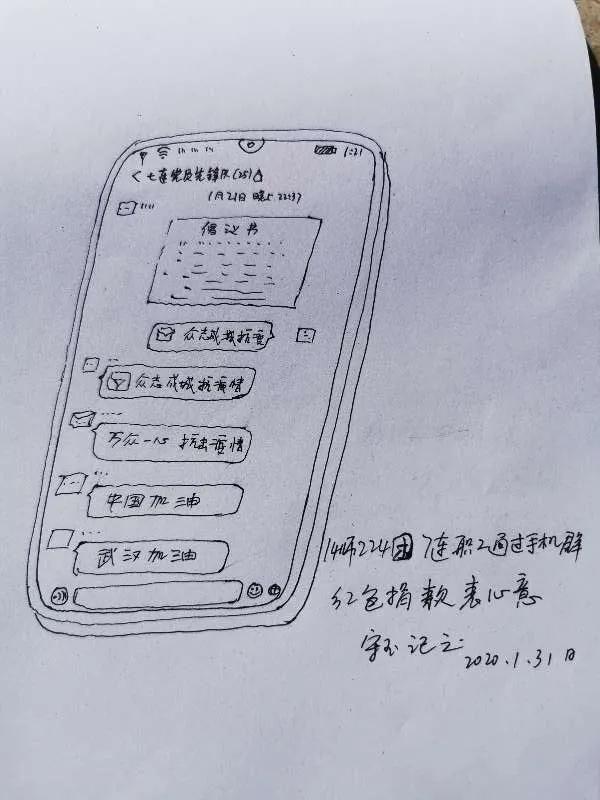 1:21
七连党员先锋队(25)
1月21日 晚上 22:37
倡议书
众志成城抗疫
众志成城抗疫情
万众一心 抗击疫情
中国加油
武汉加油
14师224团 7连职工通过手机
红包捐款表心意
记之
2020.1.31日